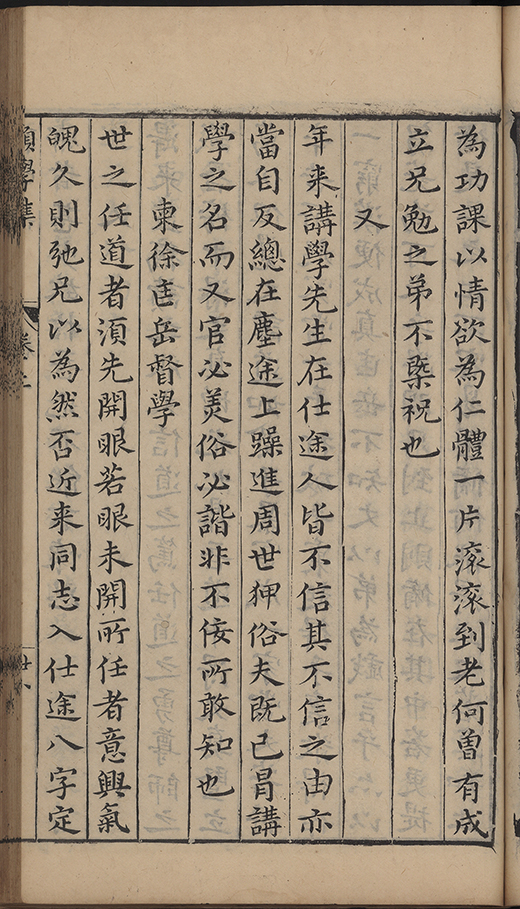 為功課以情欲為仁體一片滚滚到老何曽有成
立兄勉之弟不槩祝也
又
年来講學先生在仕途人皆不信其不信之由亦
當自反緫在塵途上躁進周世狎俗夫既已冐講
學之名而又官必羙俗必諧非不佞所敢知也
柬徐匡岳督學
世之任道者湏先開眼若眼未開所任者意興氣
魄久則弛兄以為然否近来同志入仕途八字定
願學集
卷之
廿八